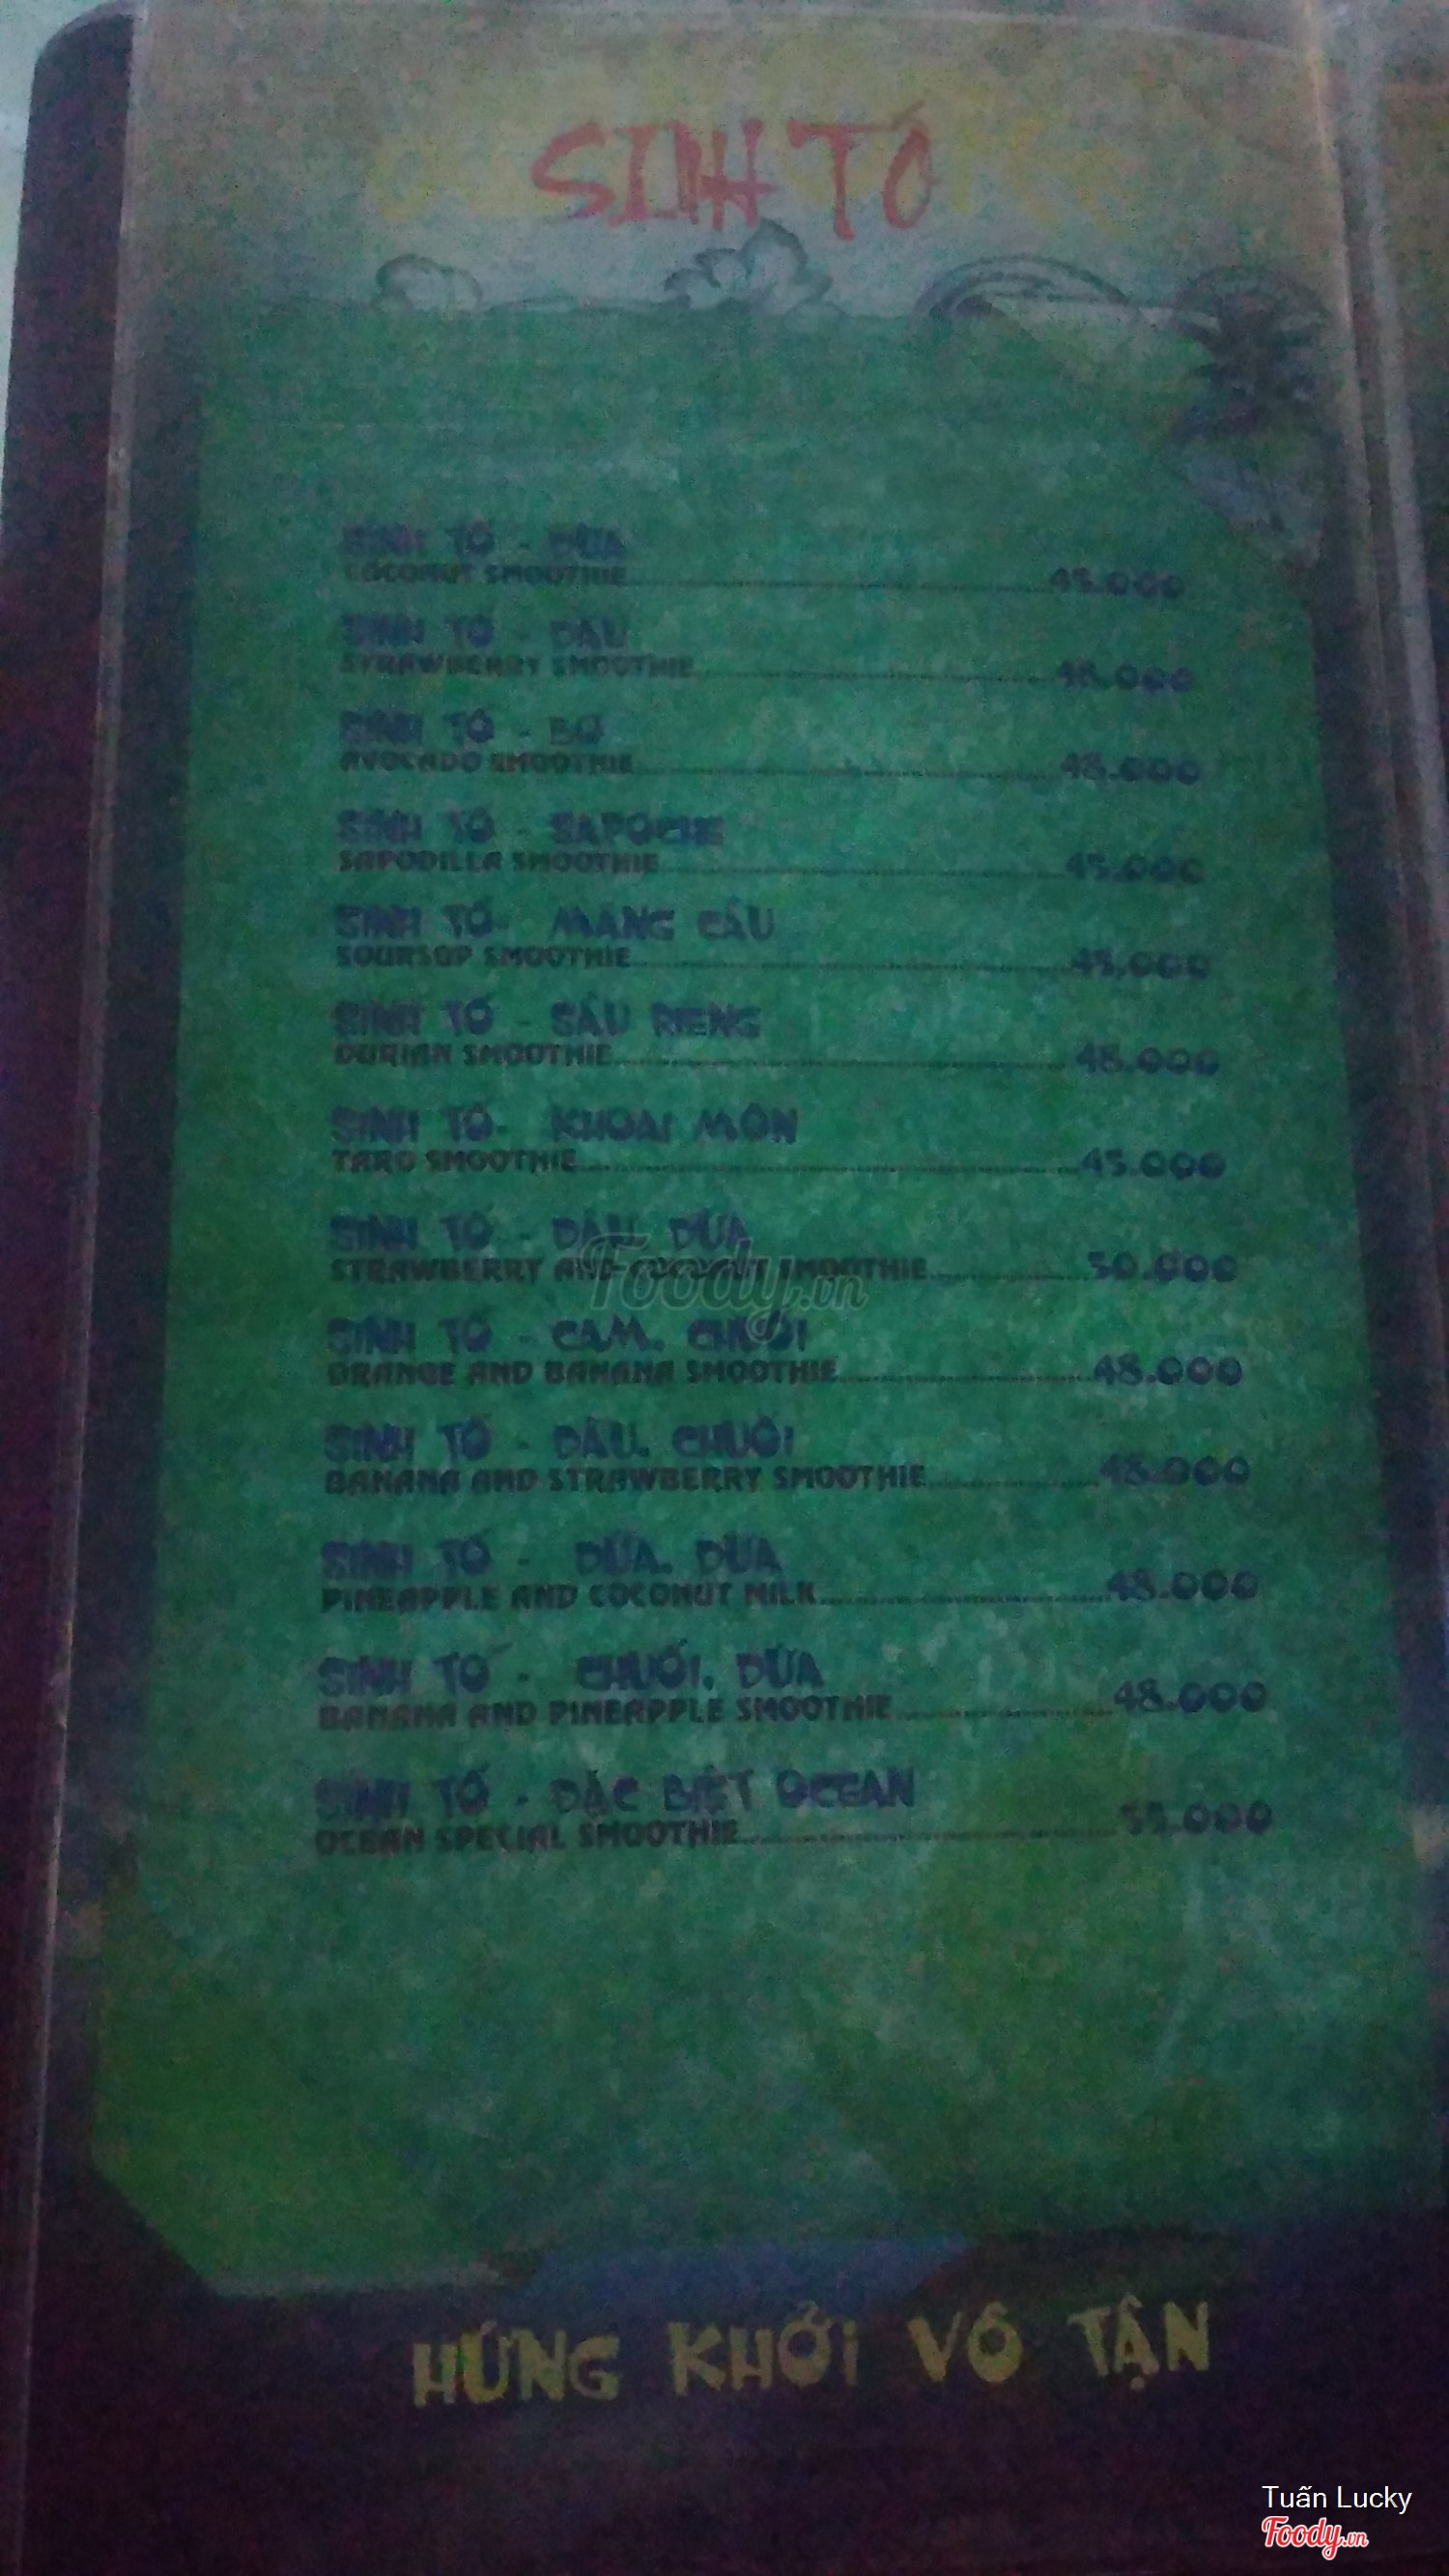 SINH TỐ
SINH TỐ - DỪA
COCONUT SMOOTHIE 45.000
SINH TỐ - DÂU
STRAWBERRY SMOOTHIE 48.000
SINH TỐ - BƠ
AVOCADO SMOOTHIE 48.000
SINH TỐ - SAPOCHE
SAPODILLA SMOOTHIE 45.000
SINH TỐ- MÃNG CẦU
SOURSOP SMOOTHIE 45.000
SINH TỐ - SẦU RIÊNG
DURIAN SMOOTHIE 48.000
SINH TỐ- KHOAI MÔN
TARO SMOOTHIE 45.000
SINH TỐ - DÂU, DỪA
STRAWBERRY AND COCONUT SMOOTHIE 50.000
SINH TỐ - CAM, CHUỐI
ORANGE AND BANANA SMOOTHIE 48.000
SINH TỐ - DÂU, CHUỐI
BANANA AND STRAWBERRY SMOOTHIE 48.000
SINH TỐ - DỨA, DỪA
PINEAPPLE AND COCONUT MILK 48.000
SINH TỐ - CHUỐI, DỨA
BANANA AND PINEAPPLE SMOOTHIE 48.000
SINH TỐ - ĐẶC BIỆT OCEAN
OCEAN SPECIAL SMOOTHIE 55.000
Foody.vn
HỨNG KHỞI VÔ TẬN
Tuấn Lucky
Foody.vn